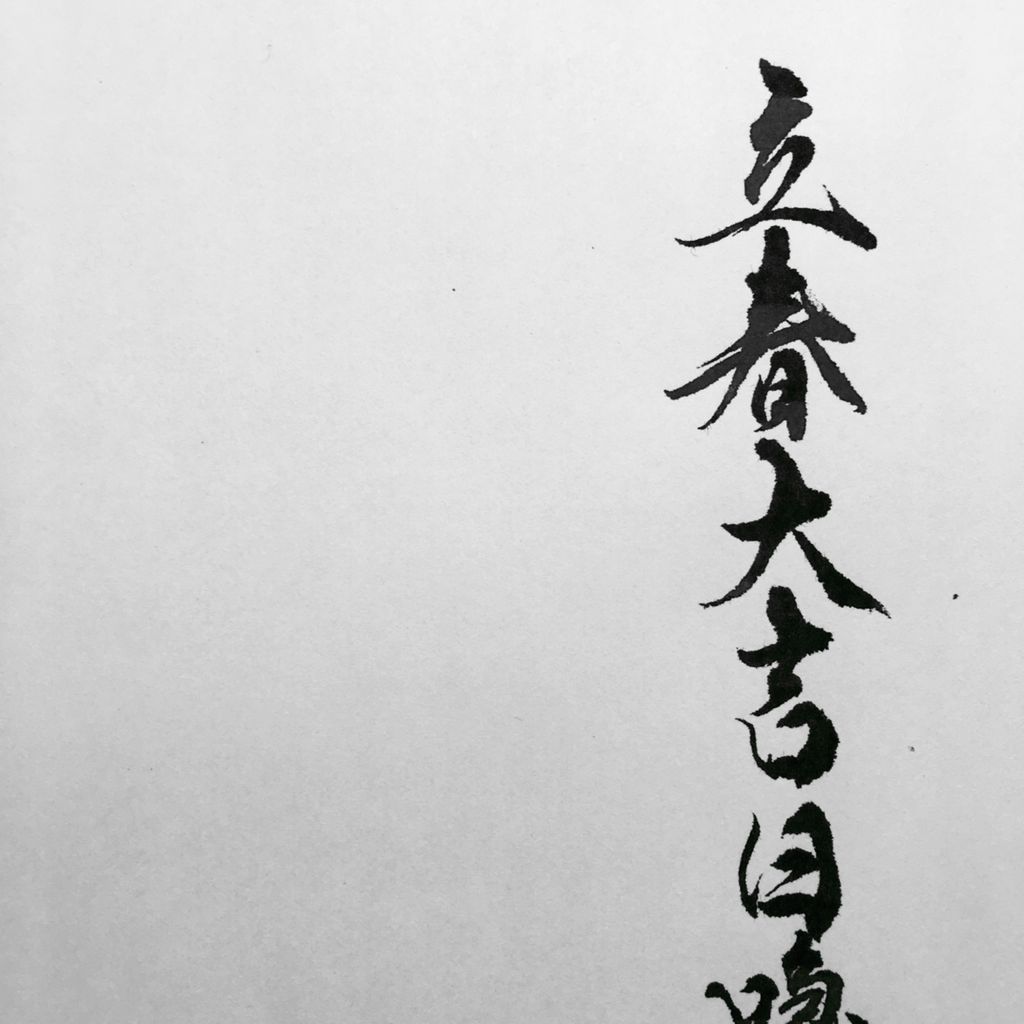 立春大吉日